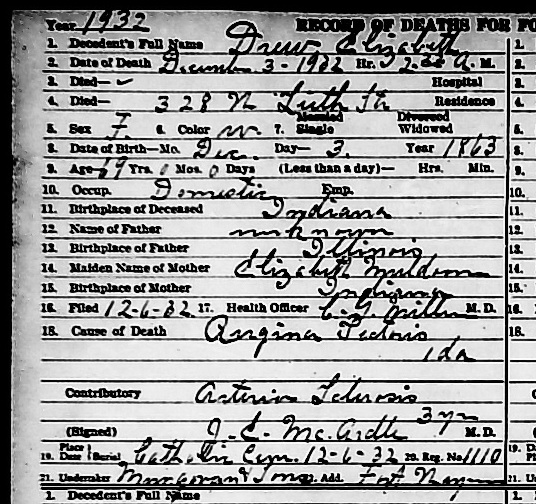 Year 1932 RECORD OF DEATHS FOR FO
1. Decedent's Full Name Drew Elizabeth
2. Date of Death December 3-1932 Hr. 2 A. M.
3. Died— Hospital
4. Died— 328 N Residence
Married Divorced
5. Sex F. 6. Color w. 7. Single Widowed
8. Date of Birth—Mo. Dec. Day— 3. Year 1863
9. Age 69 Yrs. 0 Mos. 0 Days (Less than a day)— Hrs. Min.
10. Occup. Domestic Emp.
11. Birthplace of Deceased Indiana
12. Name of Father unknown
13. Birthplace of Father Illinois
14. Maiden Name of Mother Elizabeth Muldoon
15. Birthplace of Mother Indiana
16. Filed 12-6-32 17. Health Officer Miller M. D.
18. Cause of Death Angina Pectoris
1 da
Contributory Arterio Sclerosis
3 yrs
(Signed) J. E. McArdle M. D.
19. Place Date Burial Catholic Cem. 12-6-32 20. Reg. No 1110
21. Undertaker Mungovan & Sons 22. Add. Fort Wayne
1. Decedent's Full Name